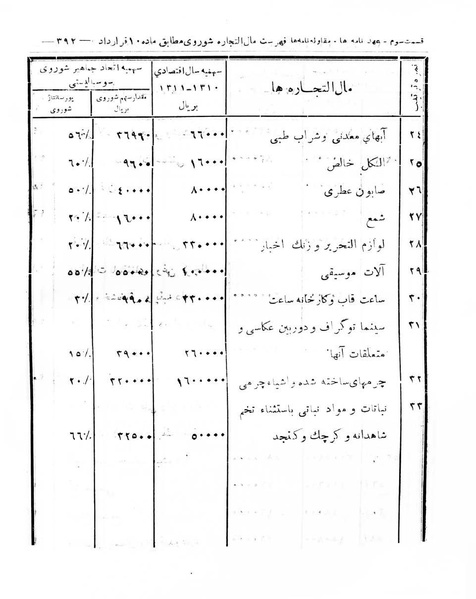 قسمت سوم - عهد نامه ها - مقاوله‌نامه‌ها فهرست مال‌التجاره شوروی مطابق ماده ۱۰ قرارداد — ۳۹۲ —
نمره ترتیب مال التجاره ها سهمیه سال اقتصادی ۱۳۱۰-۱۳۱۱ بریال سهمیه اتحاد جماهیر شوروی سوسیالیستی
مقدار سهم شوروی بریال پورسانتاژ شوروی
۲۴ آبهای معدنی و شراب طبی ۶۶۰۰۰ ۳۶۹۶۰ ۵۶٪
۲۵ الکل خالص ۱۶۰۰۰ ۹۶۰۰ ۶۰٪
۲۶ صابون عطری ۸۰۰۰۰ ۴۰۰۰۰ ۵۰٪
۲۷ شمع ۸۰۰۰۰ ۱۶۰۰۰ ۲۰٪
۲۸ لوازم التحریر و زنک اخبار ۳۳۰۰۰۰ ۶۶۰۰۰ ۲۰٪
۲۹ آلات موسیقی ۵۵۰۰۰ ۵۵٪
۳۰ ساعت قاب و کارخانه ساعت ۳۳۰۰۰۰ ۹۹۰۰ ۳٪
۳۱ سینما توگراف و دوربین عکاسی و
متعلقات آنها ۲۶۰۰۰۰ ۳۹۰۰۰ ۱۵٪
۳۲ چرمهای ساخته شده و اشیاء چرمی ۱۶۰۰۰۰۰ ۳۲۰۰۰۰ ۲۰٪
۳۳ نباتات و مواد نباتی باستثناء تخم
شاهدانه و کرچك و کنجد ۵۰۰۰۰ ۳۲۵۰۰ ۶۶٪